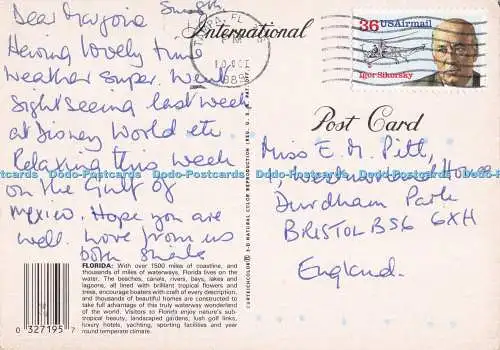 Dear Marjorie
Having lovely time
Weather super. Went
Sight Seeing last week
at Disney World etc
Relaxing this week
on the Gulf of
Mexico. Hope you are
well. Love from us
both
International
TAMPA, FL
PM
10 OCT
1989
36 USAirmail
Igor Sikorsky
Post Card
Miss E. M. Pitt,
1, Westmoreland House
Durdham Park
BRISTOL BS6 6XH
England.
FLORIDA: With over 1500 miles of coastline, and
thousands of miles of waterways, Florida lives on the
water. The beaches, canals, rivers, bays, lakes and
lagoons, all lined with brilliant tropical flowers and
trees, encourage boaters with craft of every description,
and thousands of beautiful homes are constructed to
take full advantage of this truly waterway wonderland
of the world. Visitors to Florida enjoy nature's sub-
tropical beauty, landscaped gardens, lush golf links,
luxury hotels, yachting, sporting facilities and year
round temperate climate.
0 327195 7
CURTEICHCOLOR® 3-D NATURAL COLOR REPRODUCTION (REG. U.S.A. PAT. OFF.)
Dodo-Postcards Dodo-Postcards Dodo-Postcards Dodo-Postcards Dodo-Postcards